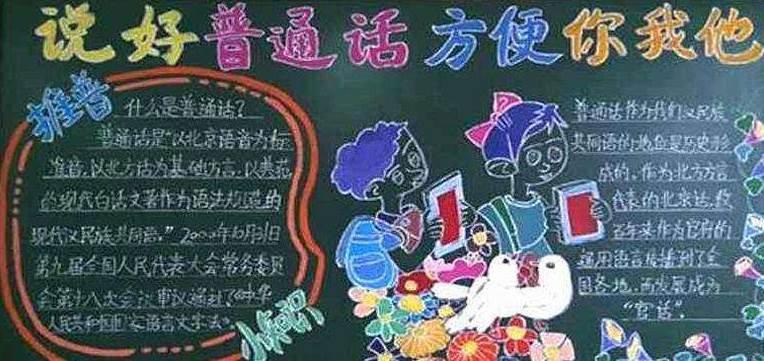 说好普通话方便你我他
推普
什么是普通话?
普通话是"以北京语音为标
准音,以北方话为基础方言,以典范
的现代白话文著作为语法规范的
现代汉民族共同语。"2000年10月31日
第九届全国人民代表大会常务委员
会第十八次会议审议通过了《中华
人民共和国国家语言文字法》
小知识
普通话作为我们汉民族
共同语的地位是历史形
成的,作为北方方言
代表的北京话,数
百年来作为官府的
通用语言传播到了全
国各地,而发展成为
"官话"。